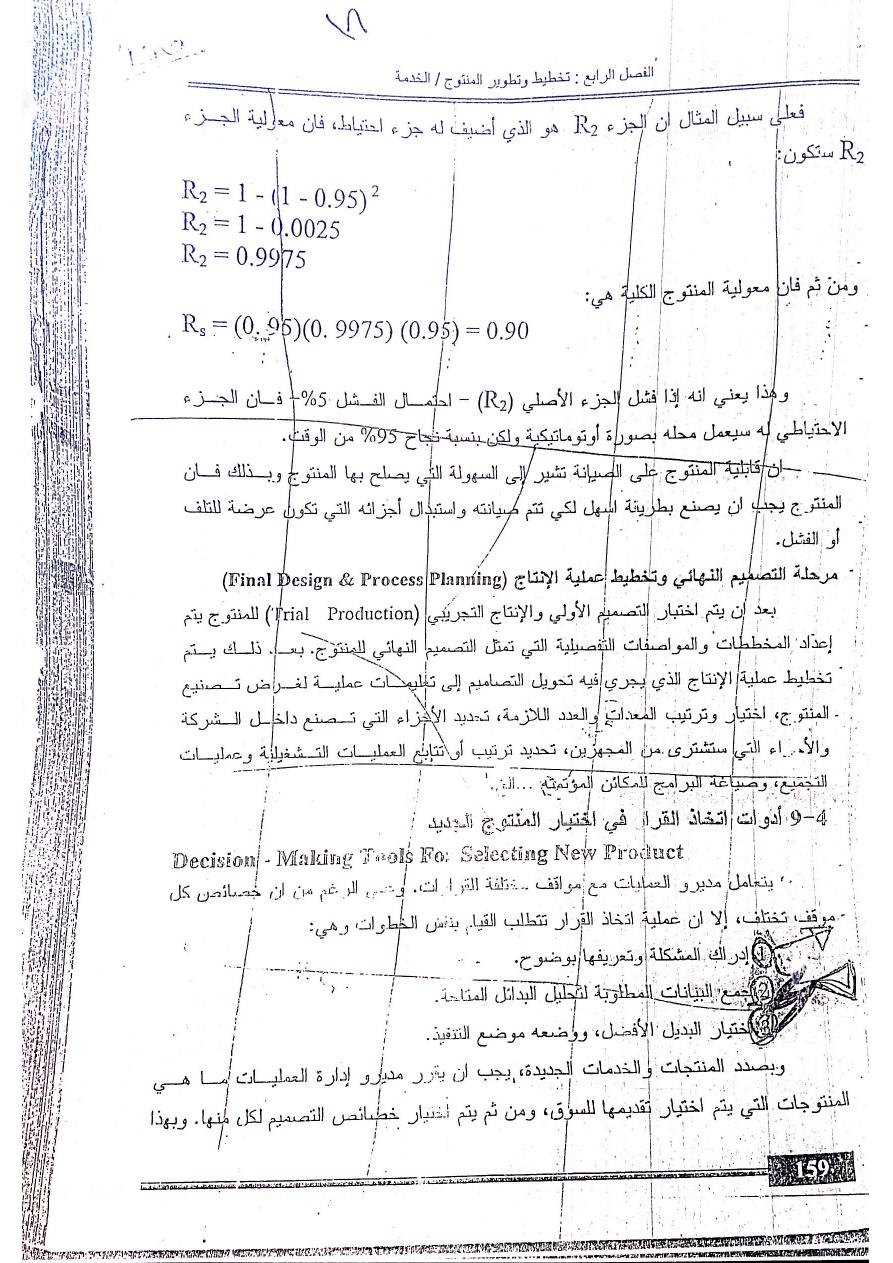 الفصل الرابع : تخطيط وتطوير المنتوج / الخدمة
فعلى سبيل المثال ان الجزء R2 هو الذي أضيف له جزء احتياط، فان معولية الجزء
R2 ستكون:
R2 = 1 - (1 - 0.95)²
R2 = 1 - 0.0025
R2 = 0.9975
ومن ثم فان معولية المنتوج الكلية هي:
Rs = (0.95)(0.9975) (0.95) = 0.90
وهذا يعني انه إذا فشل الجزء الأصلي (R2) – احتمال الفشل 5%- فان الجزء
الاحتياطي له سيعمل محله بصورة أوتوماتيكية ولكن بنسبة نجاح 95% من الوقت.
ان قابلية المنتوج على الصيانة تشير إلى السهولة التي يصلح بها المنتوج وبذلك فان
المنتوج يجب ان يصنع بطريقة اسهل لكي تتم صيانته واستبدال أجزائه التي تكون عرضة للتلف
أو الفشل.
مرحلة التصميم النهائي وتخطيط عملية الإنتاج (Final Design & Process Planning)
بعد ان يتم اختبار التصميم الأولي والإنتاج التجريبي (Trial Production) للمنتوج يتم
إعداد المخططات والمواصفات التفصيلية التي تمثل التصميم النهائي للمنتوج. بعد ذلك يتم
تخطيط عملية الإنتاج الذي يجري فيه تحويل التصاميم إلى تعليمات عملية لغرض تصنيع
المنتوج، اختيار وترتيب المعدات والعدد اللازمة، تحديد الأجزاء التي تصنع داخل الشركة
والأجزاء التي ستشترى من المجهزين، تحديد ترتيب أو تتابع العمليات التشغيلية وعمليات
التجميع، وصياغة البرامج للمكائن المؤتمتة ...الخ.
9-4 أدوات اتخاذ القرار في اختيار المنتوج الجديد
Decision - Making Tools For Selecting New Product
يتعامل مديرو العمليات مع مواقف مختلفة القرارات. وعلى الرغم من ان خصائص كل
موقف تختلف، إلا ان عملية اتخاذ القرار تتطلب القيام بنفس الخطوات وهي:
1 إدراك المشكلة وتعريفها بوضوح.
2 جمع البيانات المطلوبة لتحليل البدائل المتاحة.
3 اختيار البديل الأفضل، ووضعه موضع التنفيذ.
وبصدد المنتجات والخدمات الجديدة، يجب ان يقرر مديرو إدارة العمليات ما هي
المنتوجات التي يتم اختيار تقديمها للسوق، ومن ثم يتم اختيار خصائص التصميم لكل منها. وبهذا
159